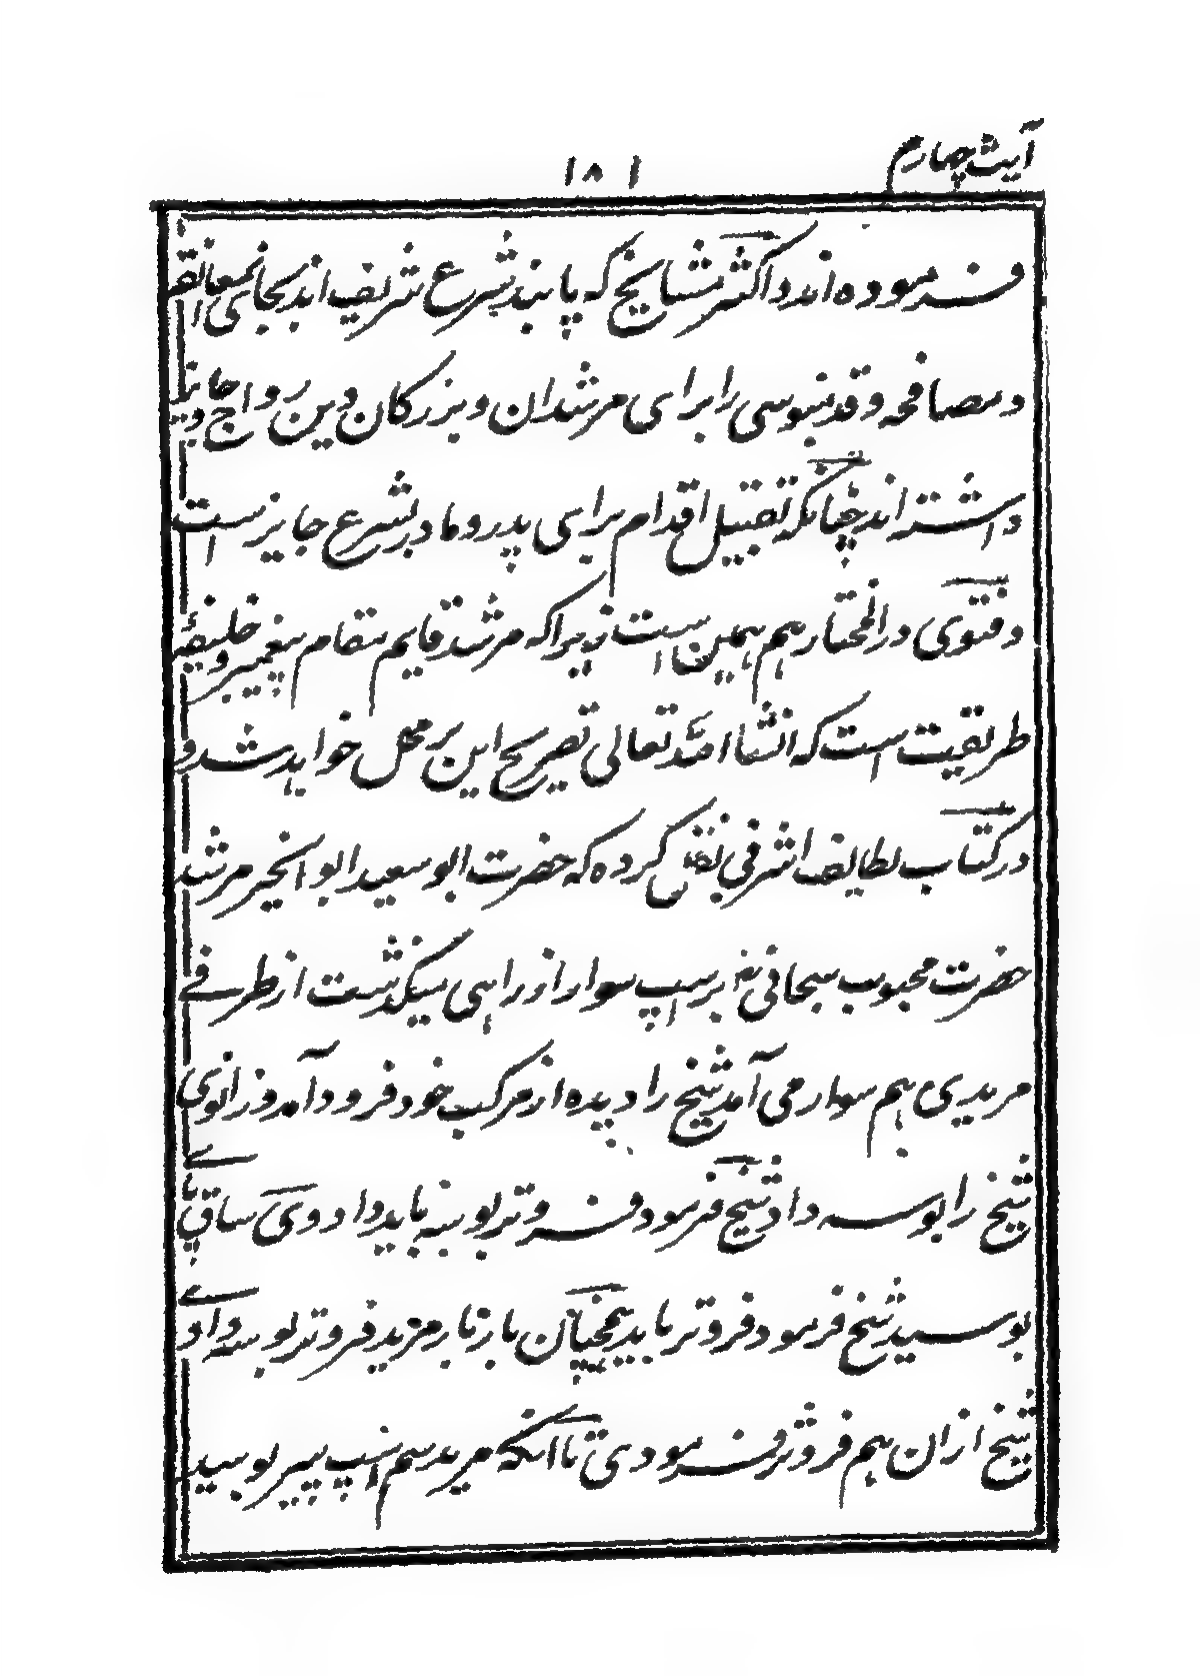 آیت چهارم
۱۸۱
فرموده اند و اکثر مشایخ که پابند شرع شریف اند بجای معانقه
و مصافحه و قدمبوسی را برای مرشدان و بزرگان دین رواج جایز
داشته اند چنانکه تقبیل اقدام برای پدر و مادر بشرع جایز است
و فتوی درالمختار هم همین است زیرا که مرشد قایم مقام پیغمبر و خلیفۀ
طریقت است که انشا الله تعالی تصریح این بر محل خواهد شد و
در کتاب لطایف اشرفی نقل کرده که حضرت ابو سعید ابو الخیر مرشد
حضرت محبوب سبحانی بر اسپ سوار از راهی میگذشت از طرفے
مریدی هم سوار می آمد شیخ را دیده از مرکب خود فرود آمد و زانوی
شیخ را بوسه داد شیخ فرمود فروتر بوسه باید داد وی ساق پاے
بوسید شیخ فرمود فروتر باید همچنان باز تا بر مزید فروتر بوسه دادے
شیخ ازان هم فروتر فرمودی تا آنکه مرید سم اسپ پیر بوسید